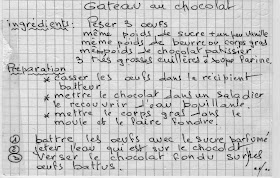 Gateau au chocolat
ingredients: Peser 3 oeufs
même poids de sucre + un peu vanille
même poids de beurre ou corps gras
même poids de chocolat patissier
3 très grosses cuillères à soupe farine.
Préparation
* casser les oeufs dans le récipient
batteur
* mettre le chocolat dans un saladier
le recouvrir d'eau bouillante.
* mettre le corps gras dans le
moule et le faire fondre.
① battre les oeufs avec le sucre parfumé
② jeter l'eau qui est sur le chocolat
③ Verser le chocolat fondu sur les
oeufs battus.